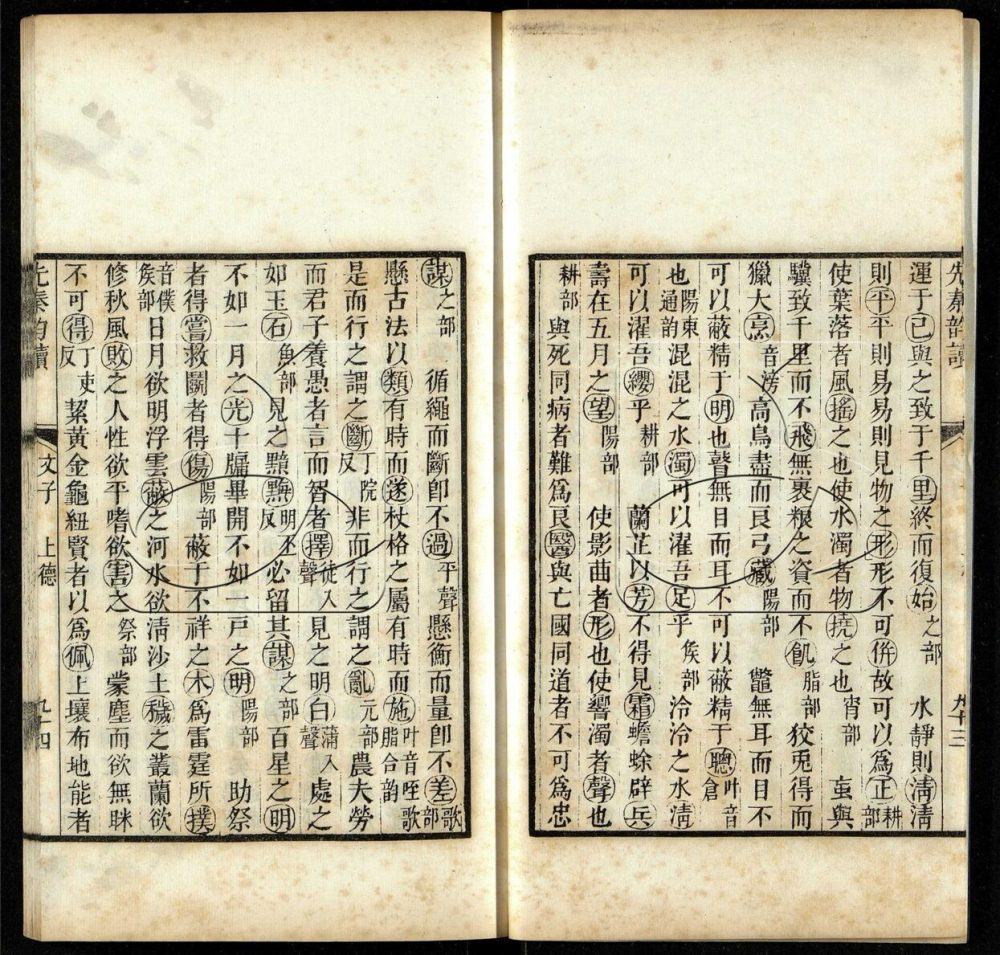 先秦韵讀
九十三
運于己與之致于千里終而復始之部 水靜則淸淸
則平平則易易則見物之形形不可併故可以爲正耕部
使葉落者風搖之也使水濁者物撓之也宵部 䖝與
驥致千里而不飛無裹粮之資而不飢脂部 狡兎得而
獵大烹音滂高鳥盡而良弓藏陽部 鼈無耳而目不
可以蔽精于明也瞽無目而耳不可以蔽精于聰叶音倉
也陽東通韵混混之水濁可以濯吾足乎矦部泠泠之水淸
可以濯吾纓乎耕部 蘭芷以芳不得見霜蟾蜍辟兵
壽在五月之望陽部 使影曲者形也使響濁者聲也
耕部與死同病者難爲良醫與亡國同道者不可爲忠
謀之部 循繩而斷卽不過平聲懸衡而量卽不差歌部
懸古法以類有時而遂杖格之屬有時而施叶音咥歌脂合韵
是而行之謂之斷丁院反非而行之謂之亂元部農夫勞
而君子養愚者言而智者擇徒入聲見之明白蒲入聲處之
如玉石魚部見之黭黣明丕反必留其謀之部百星之明
不如一月之光十牖畢開不如一戶之明陽部 助祭
者得嘗救鬭者得傷陽部蔽于不祥之木爲雷霆所撲
音僕矦部日月欲明浮雲蔽之河水欲淸沙土穢之叢蘭欲
修秋風敗之人性欲平嗜欲害之祭部 蒙塵而欲無眯
不可得丁吏反絜黃金龜紐賢者以爲佩土壤布地能者
先秦韵讀
文子 上德
九十四